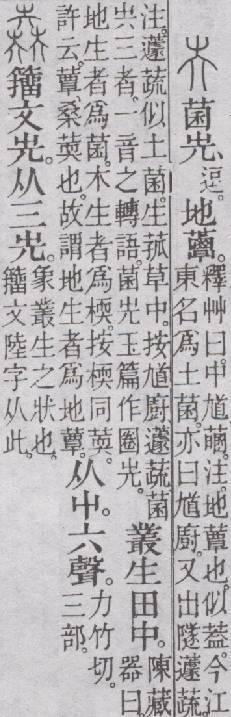 菌圥、逗。地蕈。釋艸曰。中馗菌。注。地蕈也。似葢。今江
東名爲土菌。亦曰馗廚。又出隧蘧蔬
注。蘧蔬似土菌。生菰草中。按馗廚蘧蔬菌
圥三者。一音之轉語。菌圥玉篇作圈圥。叢生田中。陳藏
器曰。
地生者爲菌。木生者爲㮕。按㮕同䓴。
許云。蕈、桑䓴也。故謂地生者爲地蕈。从屮。六聲。力竹切。
三部。
籒文圥。从三圥。象叢生之狀也。
籒文陸字从此。